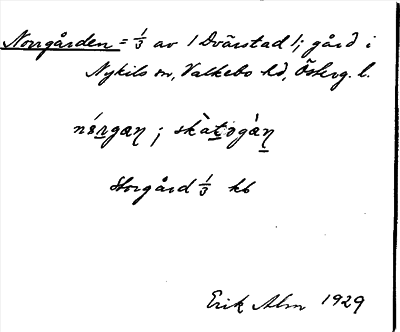 Norrgården = 1/3 av 1 Dvärstad 1; gård i
Nykils sn, Valkebo hd, Österg. l.
nórgæn ; skàtogàn
Storgård 1/3 kb
Erik Alm 1929